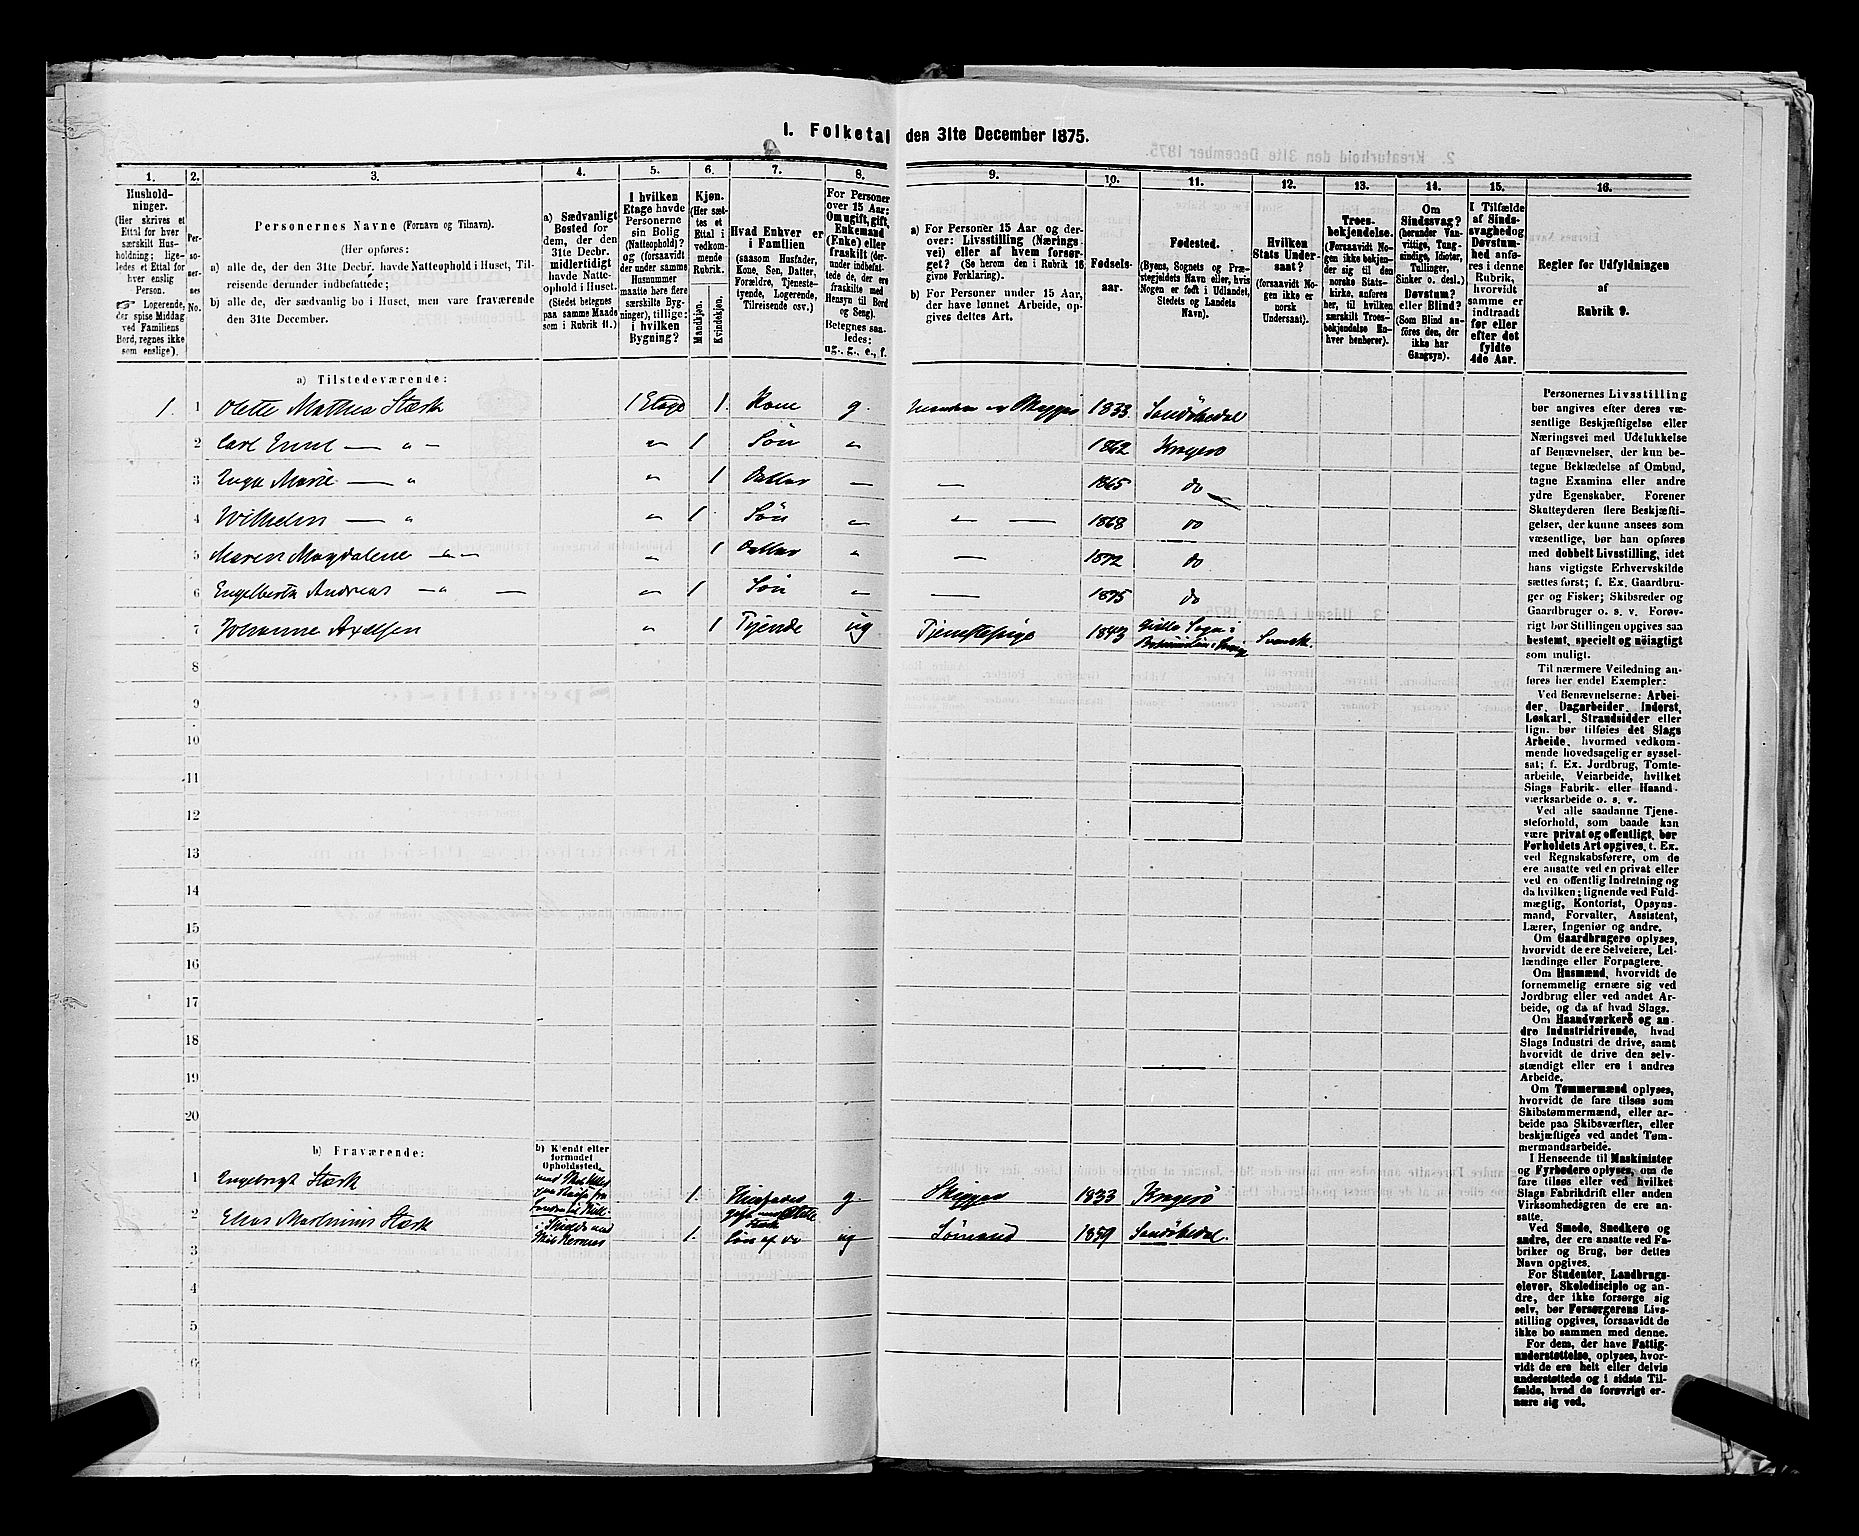 I. Folketal den 31te December 1875.
1.
Hushold-
ninger.
(Her skrives et
Ettal for hver
særskilt Hus-
holdning; lige-
ledes et Ettal for
hver enslig
Person.
☞ Logerende,
der spise Middag
ved Familiens
Bord, regnes ikke
som enslige).
2.
Per-
so-
ner-
nes
No.
3.
Personernes Navne (Fornavn og Tilnavn).
(Her opføres:
a) alle de, der den 31te Decbr. havde Natteophold i Huset, Til-
reisende derunder indbefattede;
b) alle de, der sædvanlig bo i Huset, men vare fraværende
den 31te December.
4.
a) Sædvanligt
Bosted for
dem, der den
31te Decbr.
midlertidigt
havde Natte-
ophold i Huset.
(Stedet betegnes
paa samme Maade
som i Rubrik 11.)
5.
I hvilken
Etage havde
Personerne
sin Bolig
(Natteophold)?
og (forsaavidt
der under samme
Husnummer
maatte høre flere
særskilte Byg-
ninger), tillige:
i hvilken
Bygning?
6.
Kjøn.
(Her sæt-
tes et
Ettal i
vedkom-
mende
Rubrik.
Mandkjøn.
Kvindekjøn.
7.
Hvad Enhver er
i Familien
(saasom Husfader,
Kone, Søn, Datter,
Forældre, Tjeneste-
tyende, Logerende,
Tilreisende osv.)
8.
For Personer
over 15 Aar:
Om ugift, gift,
Enkemand
(Enke) eller
fraskilt (der-
under indbefat-
tede de, der ere
fraskilte med
Hensyn til Bord
og Seng).
Betegnes saa-
ledes:
ug., g., e., f.
9.
a) For Personer 15 Aar og der-
over: Livsstilling (Nærings-
vei) eller af hvem forsør-
get? (Se herom den i Rubrik 16
givne Forklaring).
b) For Personer under 15 Aar,
der have lønnet Arbeide, op-
gives dettes Art.
10.
Fødsels-
aar.
11.
Fødested.
(Byens, Sognets og Præ-
stegjeldets Navn eller, hvis
Nogen er født i Udlandet,
Stedets og Landets
Navn).
12.
Hvilken
Stats Under-
saat?
(forsaavidt No-
gen ikke er
norsk
Undersaat).
13.
Troes-
bekjendelse.
(Forsaavidt No-
gen ikke bekjen-
der sig til den
norske Stats-
kirke, anføres
her, til hvilken
særskilt Troes-
bekjendelse En-
hver henhører).
14.
Om
Sindssvag?
(herunder Van-
vittige, Tung-
sindige, Idioter,
Tullinger,
Sinker o. desl.)
Døvstum?
eller Blind?
(Som Blind an-
føres den, der
ikke har
Gangsyn).
15.
I Tilfælde
af Sinds-
svaghed og
Døvstum-
hed anfø-
res i denne
Rubrik,
hvorvidt
samme er
indtraadt
før eller
efter det
fyldte
4de Aar.
16.
Regler for Udfyldningen
af
Rubrik 9.
a) Tilstedeværende:
1. 1 Olette Mathea Stærk 1 Etage 1. Kone g. 1833 Sandøkedal
2 Carl Emil — „ — „ 1 Søn „ 1862 Kragerø
3 Inga Marie — „ „ 1 Datter „ — 1865 do
4 Wilhelm — „ „ 1 Søn „ „ — 1868 do
5 Maren Magdalene — „ — „ 1 Datter „ — 1872 do
6 Andreas — „ — — „ 1 Søn „ — 1875 do
7 Johanne Axelsen „ 1 Tjende ug Tjenestepige 1843 Sogn i Svensk.
8
9
10
11
12
13
14
15
16
17
18
19
20
b) Fraværende:
b) Kjendt eller
formodet
Opholdssted.
1 Engebregt Stærk 1. Husfader g. Skipper 1833 Kragerø
gift med Olette
Stærk
2 Elias Martinius Stærk 1. Søn af do ug Sømand 1859 Sandøkedal.
3
4
5
6
Personernes Livsstilling
bør angives efter deres væ-
sentlige Beskjæftigelse eller
Næringsvei med Udelukkelse
af Benævnelser, der kun be-
tegne Beklædelse af Ombud,
tagne Examina eller andre
ydre Egenskaber. Forener
Skatteyderen flere Beskjæfti-
gelser, der kunne ansees som
væsentlige, bør han opføres
med dobbelt Livsstilling, idet
hans vigtigste Erhvervskilde
sættes først; f. Ex. Gaardbru-
ger og Fisker; Skibsreder og
Gaardbruger o. s. v. Forøv-
rigt bør Stillingen opgives saa
bestemt, specielt og nöiagtigt
som muligt.
Til nærmere Veiledning an-
føres her endel Exempler:
Ved Benævnelserne: Arbei-
der, Dagarbeider, Inderst,
Løskarl, Strandsidder eller
lign. bør tilføies det Slags
Arbeide, hvormed vedkom-
mende hovedsagelig er syssel-
sat; f. Ex. Jordbrug, Tomte-
arbeide, Veiarbeide, hvilket
Slags Fabrik- eller Haand-
værksarbeide o. s. v.
Ved alle saadanne Tjene-
steforhold, som baade kan
være privat og offentligt, bør
Forholdets Art opgives, t. Ex.
ved Regnskabsførere, om de
ere ansatte ved en privat eller
ved en offentlig Indretning og
da hvilken; lignende ved Fuld-
mægtig, Kontorist, Opsyns-
mand, Forvalter, Assistent,
Lærer, Ingeniør og andre.
Om Gaardbrugere oplyses,
hvorvidt de ere Selveiere, Lei-
lændinge eller Forpagtere.
Om Husmænd, hvorvidt de
fornemmelig ernære sig ved
Jordbrug eller ved andet Ar-
beide, og da af hvad Slags.
Om Haandværkere og an-
dre Industridrivende, hvad
Slags Industri de drive, samt
hvorvidt de drive den selv-
stændigt eller ere i andres
Arbeide.
Om Tømmermænd oplyses,
hvorvidt de fare tilsøs som
Skibstømmermænd, eller ar-
beide paa Skibsværfter, eller
beskjæftiges ved andet Tøm-
mermandsarbeide.
I Henseende til Maskinister
og Fyrbødere oplyses, om de
fare tilsøs eller ved hvilket
Slags Fabrikdrift eller anden
Virksomhedsgren de ere an-
satte.
Ved Smede, Snedkere og
andre, der ere ansatte ved Fa-
briker og Brug, bør dettes
Navn opgives.
For Studenter, Landbrugs-
elever, Skoledisciple og an-
dre, der ikke forsørge sig
selv, bør Forsørgerens Livs-
stilling opgives, forsaavidt de
ikke bo sammen med denne.
For dem, der have Fattig-
understøttelse, oplyses, hvor-
vidt de ere helt eller delvis
understøttede og i sidste Til-
fælde, hvad de forøvrigt er-
nære sig ved.